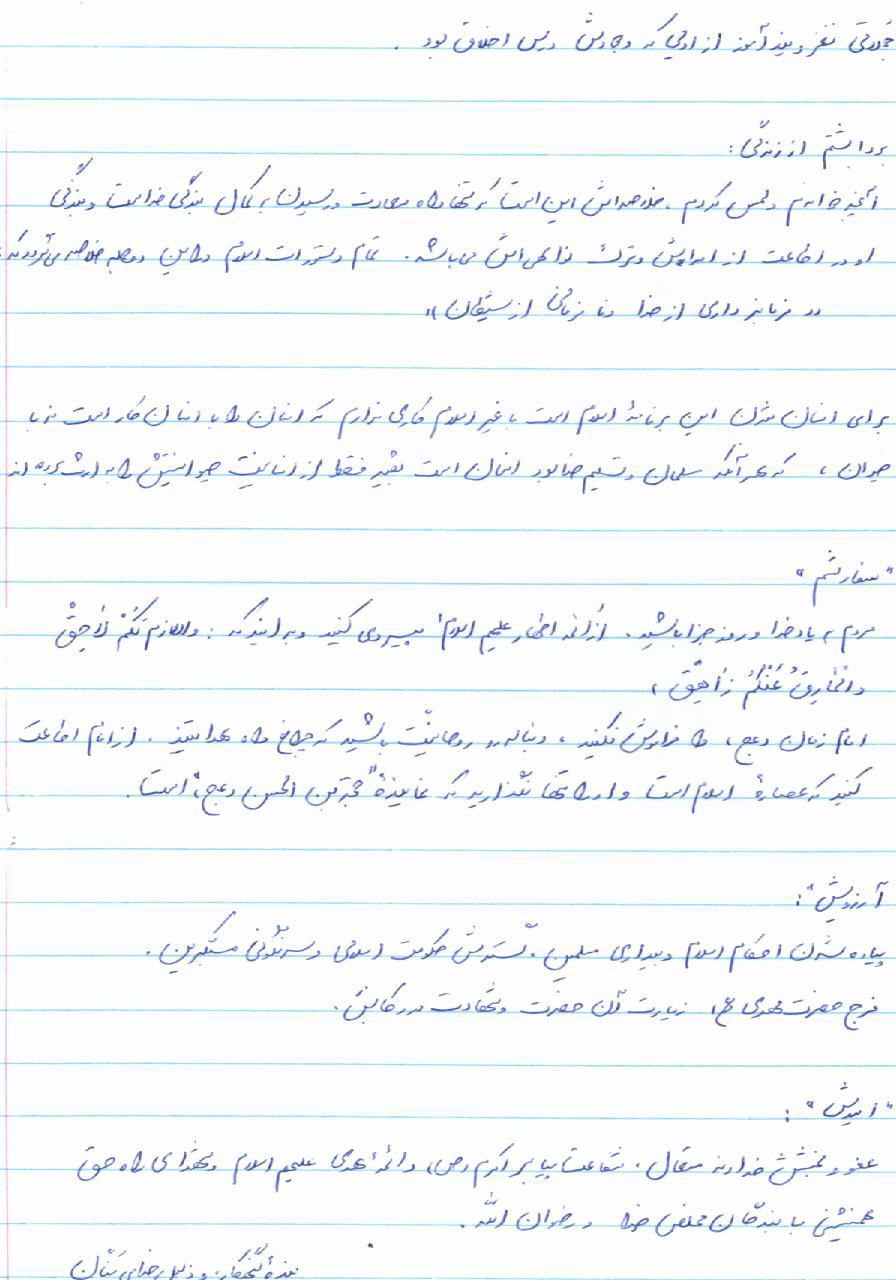 جملاتی نغز و پند آموز از اویی که وجودش درس اخلاق بود .
برداشتم از زندگی :
آنچه خواندم و لمس کردم ، خلاصه‌اش این است که تنها راه سعادت و رسیدن به کمال بندگی خداست و بندگی
او در اطاعت از اوامرش و ترک نواهی‌اش می‌باشد . تمام دستورات اسلام در این دو جمله خلاصه می‌گردد که :
« فرمانبرداری از خدا و نافرمانی از شیطان »
برای انسان شدن این برنامهٔ اسلام است با غیر اسلام کاری نداریم که انسان را با انسان کار است نه با
حیوان ، که هر آنکه مسلمان و تسلیم خدا بود انسان است بقیه فقط از انسانیت حیوانیتش را به ارث برده‌اند
" سفارشم "
مردم ، یاد خدا و روز جزا باشید . از ائمه اطهار علیهم السلام پیروی کنید و بدانید که : واللازم لَکُمْ لاٰحِقْ
والمٰارِقُ عَنْکُمْ زٰاهِقْ ،
امام زمان (عج) را فراموش نکنید ، دنباله‌رو روحانیّت باشید که چراغ راه هدایتند . از امام اطاعت
کنید که عصارهٔ اسلام است و او را تنها نگذارید که نمایندهٔ حجة بن الحسن (عج) است .
آرزویش " :
پیاده شدن احکام اسلام و بیداری مسلمین . گسترش حکومت اسلامی و سرنگونی مستکبرین .
فرج حضرت مهدی (عج) زیارت آن حضرت و شهادت در رکابش .
" امیدش " :
عفو و بخشش خداوند متعال . شفاعت پیامبر اکرم (ص) و ائمهٔ هدی علیهم السلام و شهدای راه حق
همنشینی با بندگان مخلص خدا و رضوان الله .
بندهٔ گنهکار و ذلیل خدای منّان